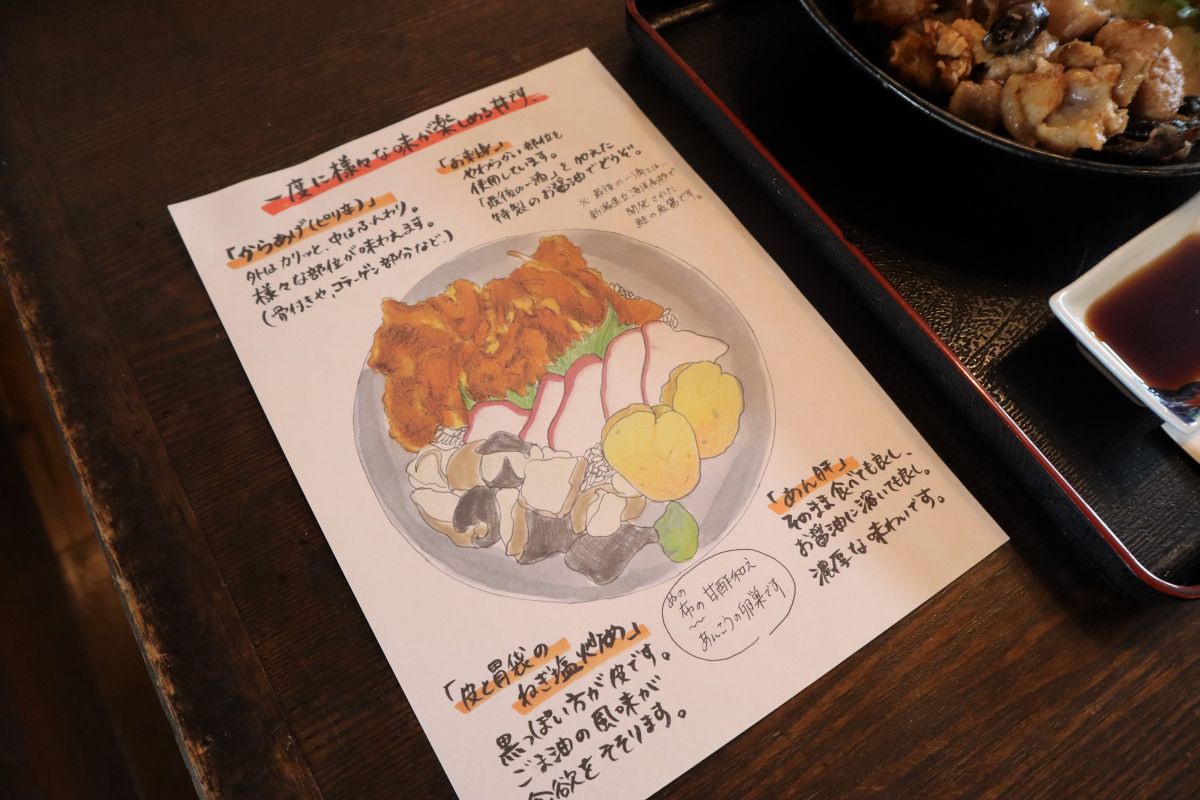 一度に様々な味が楽しめる丼です、
「お刺身」
やわらかい部位を
使用しています。
「最後の一滴」を加えた
特製のお醤油でどうぞ。
※最後の一滴とは、
新潟県立海洋高校で
開発された
鮭の魚醤です。
「からあげ(ピリ辛)」
外はカリッと、中はふんわり。
様々な部位が味わえます。
(骨付きや、コラーゲン部分など、)
「あん肝」
そのまま食べても良し、
お醤油に溶いても良し。
濃厚な味わいです。
ぬの
布の甘酢和え
あんこうの卵巣です。
「皮と胃袋の
ねぎ塩炒め」
黒っぽい方が皮です。
ごま油の風味が
食欲をそそります。